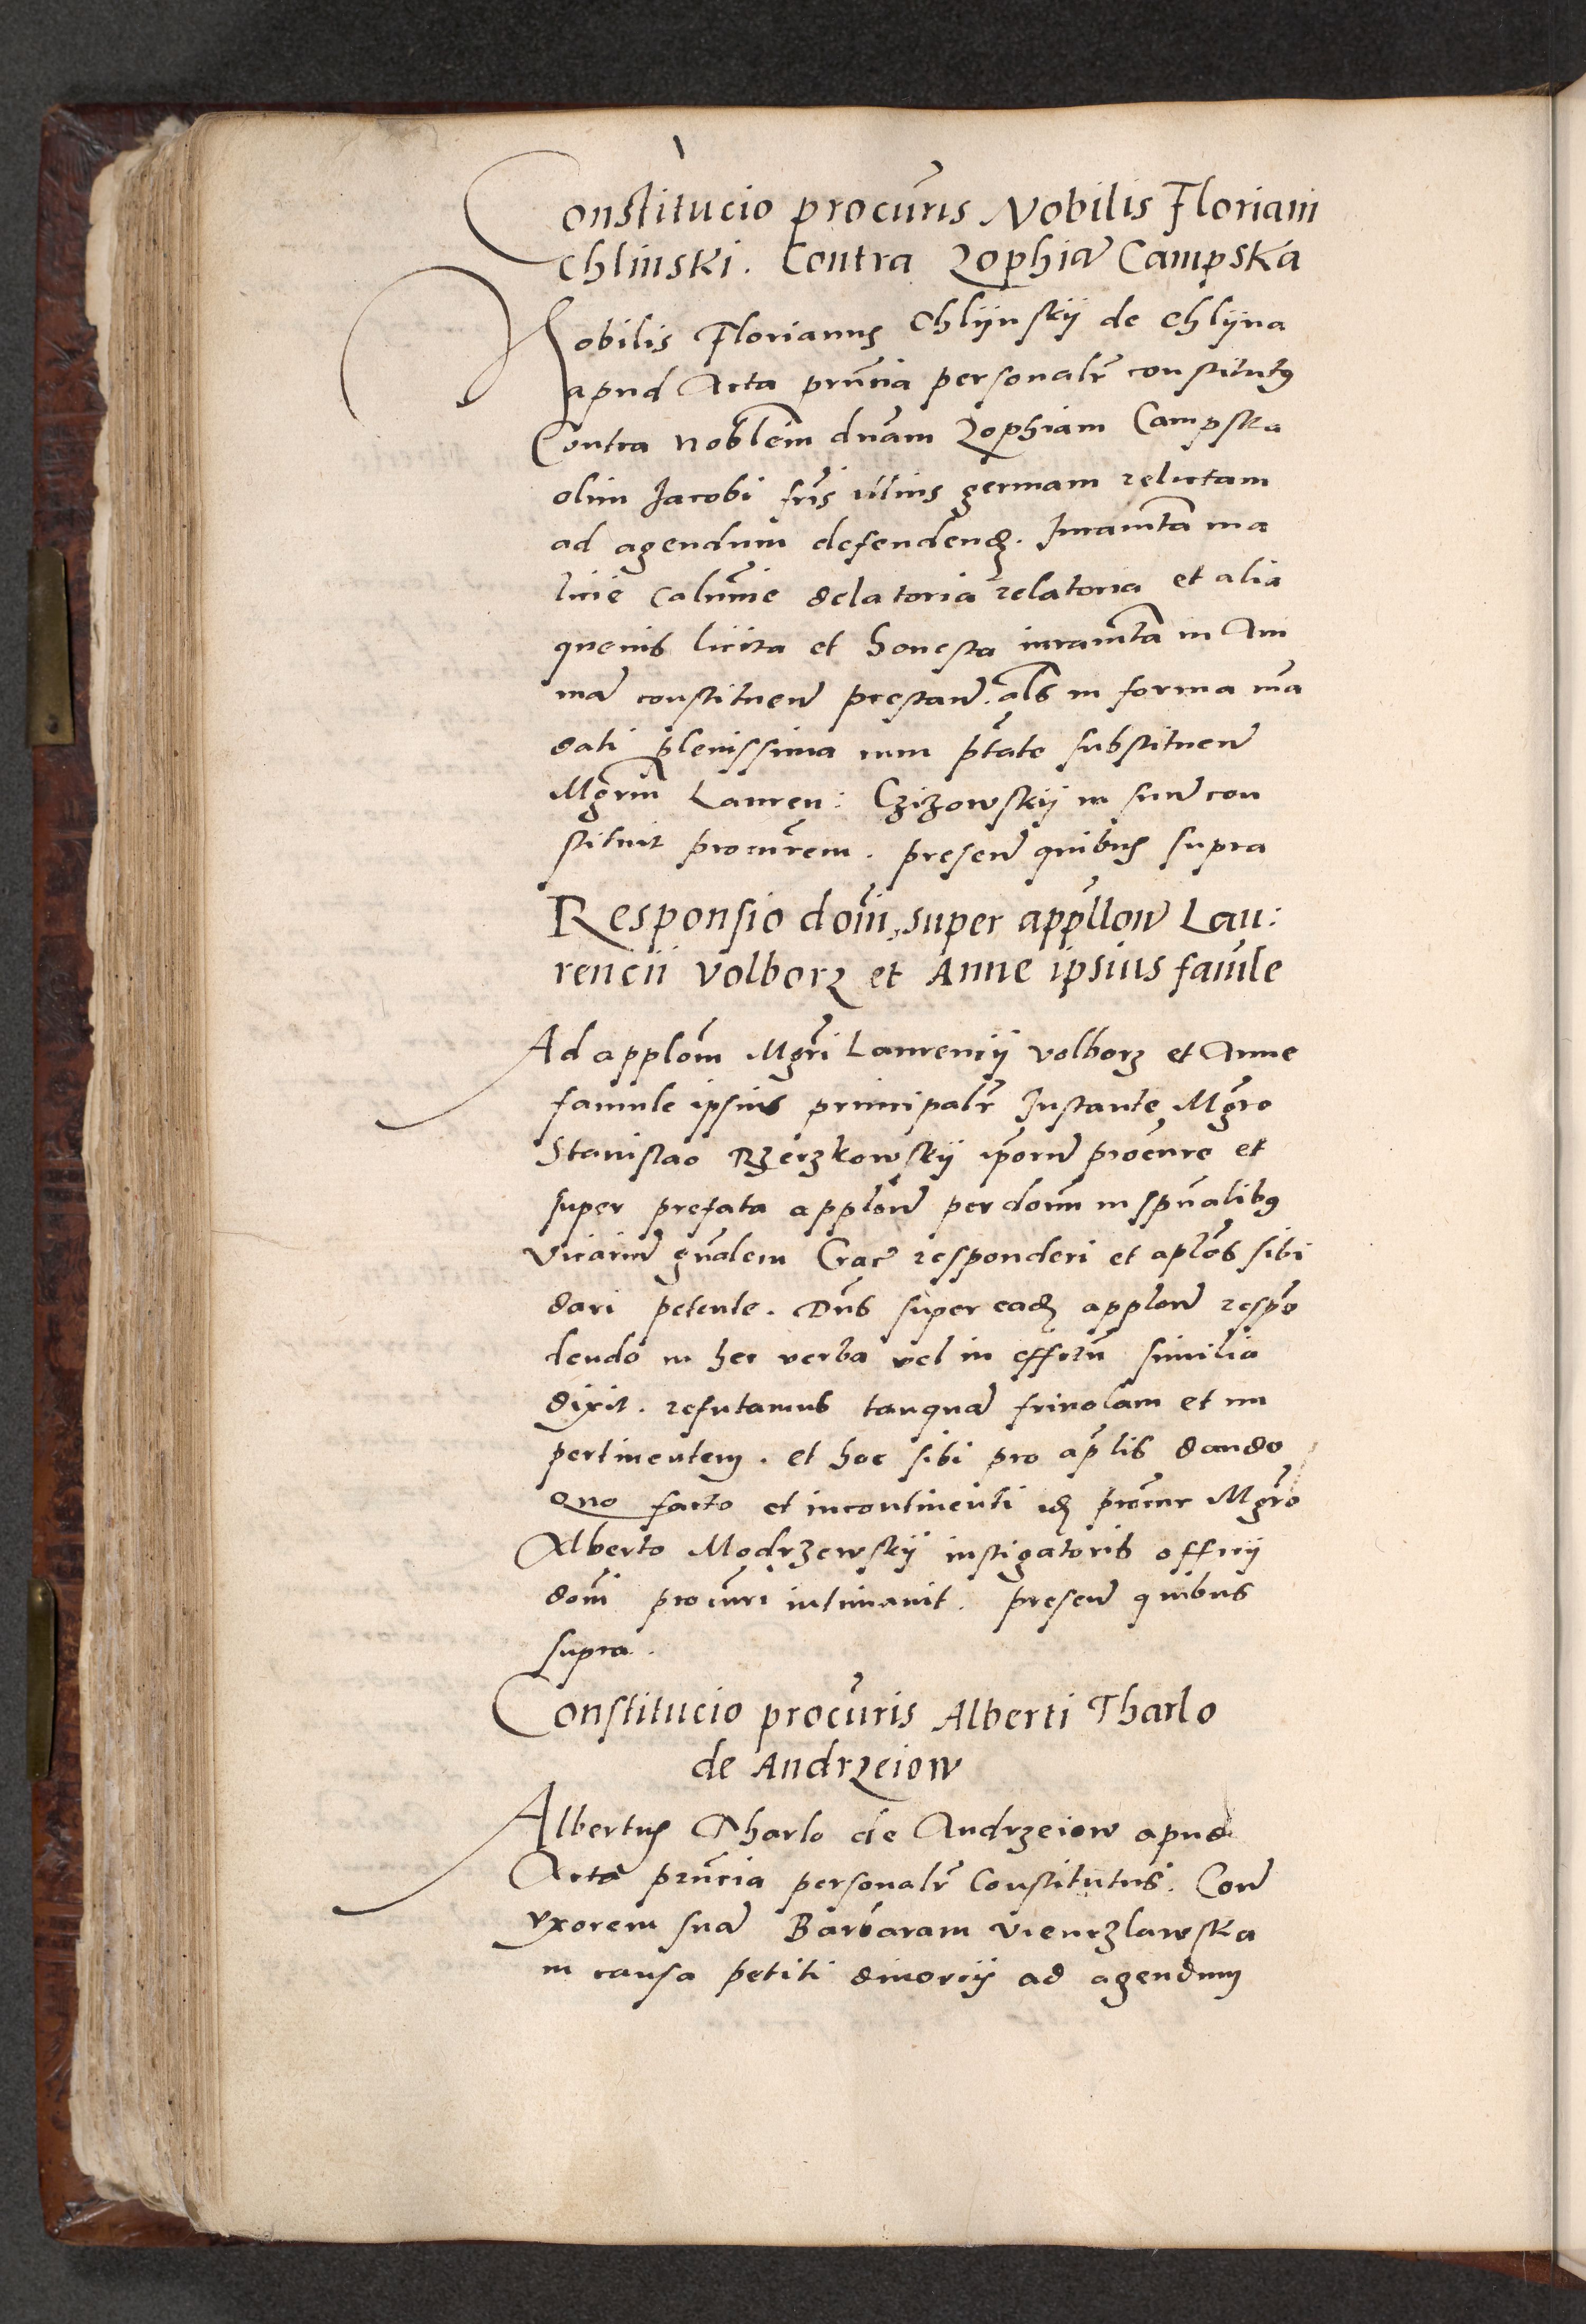 Constitucio procuris Nobilis Floriani
Chlinski. Contra Zophia Campska
Nobilis Florianus Chlijnskij de Chlijna
apud Acta pruncia personalr constitutus
Contra noblem dnam Zophiam Campska
olim Jacobi fris illius germani relictam
ad agendum defendend. Iuramta ma
licie calumnie delatoria relatoria et alia
quevis licita et honesta iuramta in Ani
ma constituen prestan. als in forma man
dati plenissima cum ptate substituen
Mgrm Lauren: Czizowskij in suum con
stituit procurem. presen quibus supra
Responsio domi, super appllon Lau:
rencii Volborz et Anne ipsius famule
Ad applom Mgri Laurencij Volborz et Anne
famule ipsius principalr Instante Mgro
Stanislao Rzerzkowskij iporum procure et
super prefata applone per donm in spualibus
Vicarium gnalem Crac responderi et aplos sibi
dari petente. Dns super ead applone respon
dendo in hec verba vel in effctu similia
dixit. refutamus tanquam frivolam et im
pertinentem. et hoc sibi pro aplis dando
Quo facto et incontinenti id procur Mgro
Alberto Modrzewskij instigatoris officij
domi procuri intimavit. presen quibus
supra.
Constitucio procuris Alberti Tharlo
de Andrzeiow
Albertus Tharlo de Andrzeiow apud
Acta pruncia personalr Constitutus. Con
uxorem suam Barbaram Vienczlawska
in causa petiti divorcij ad agendum